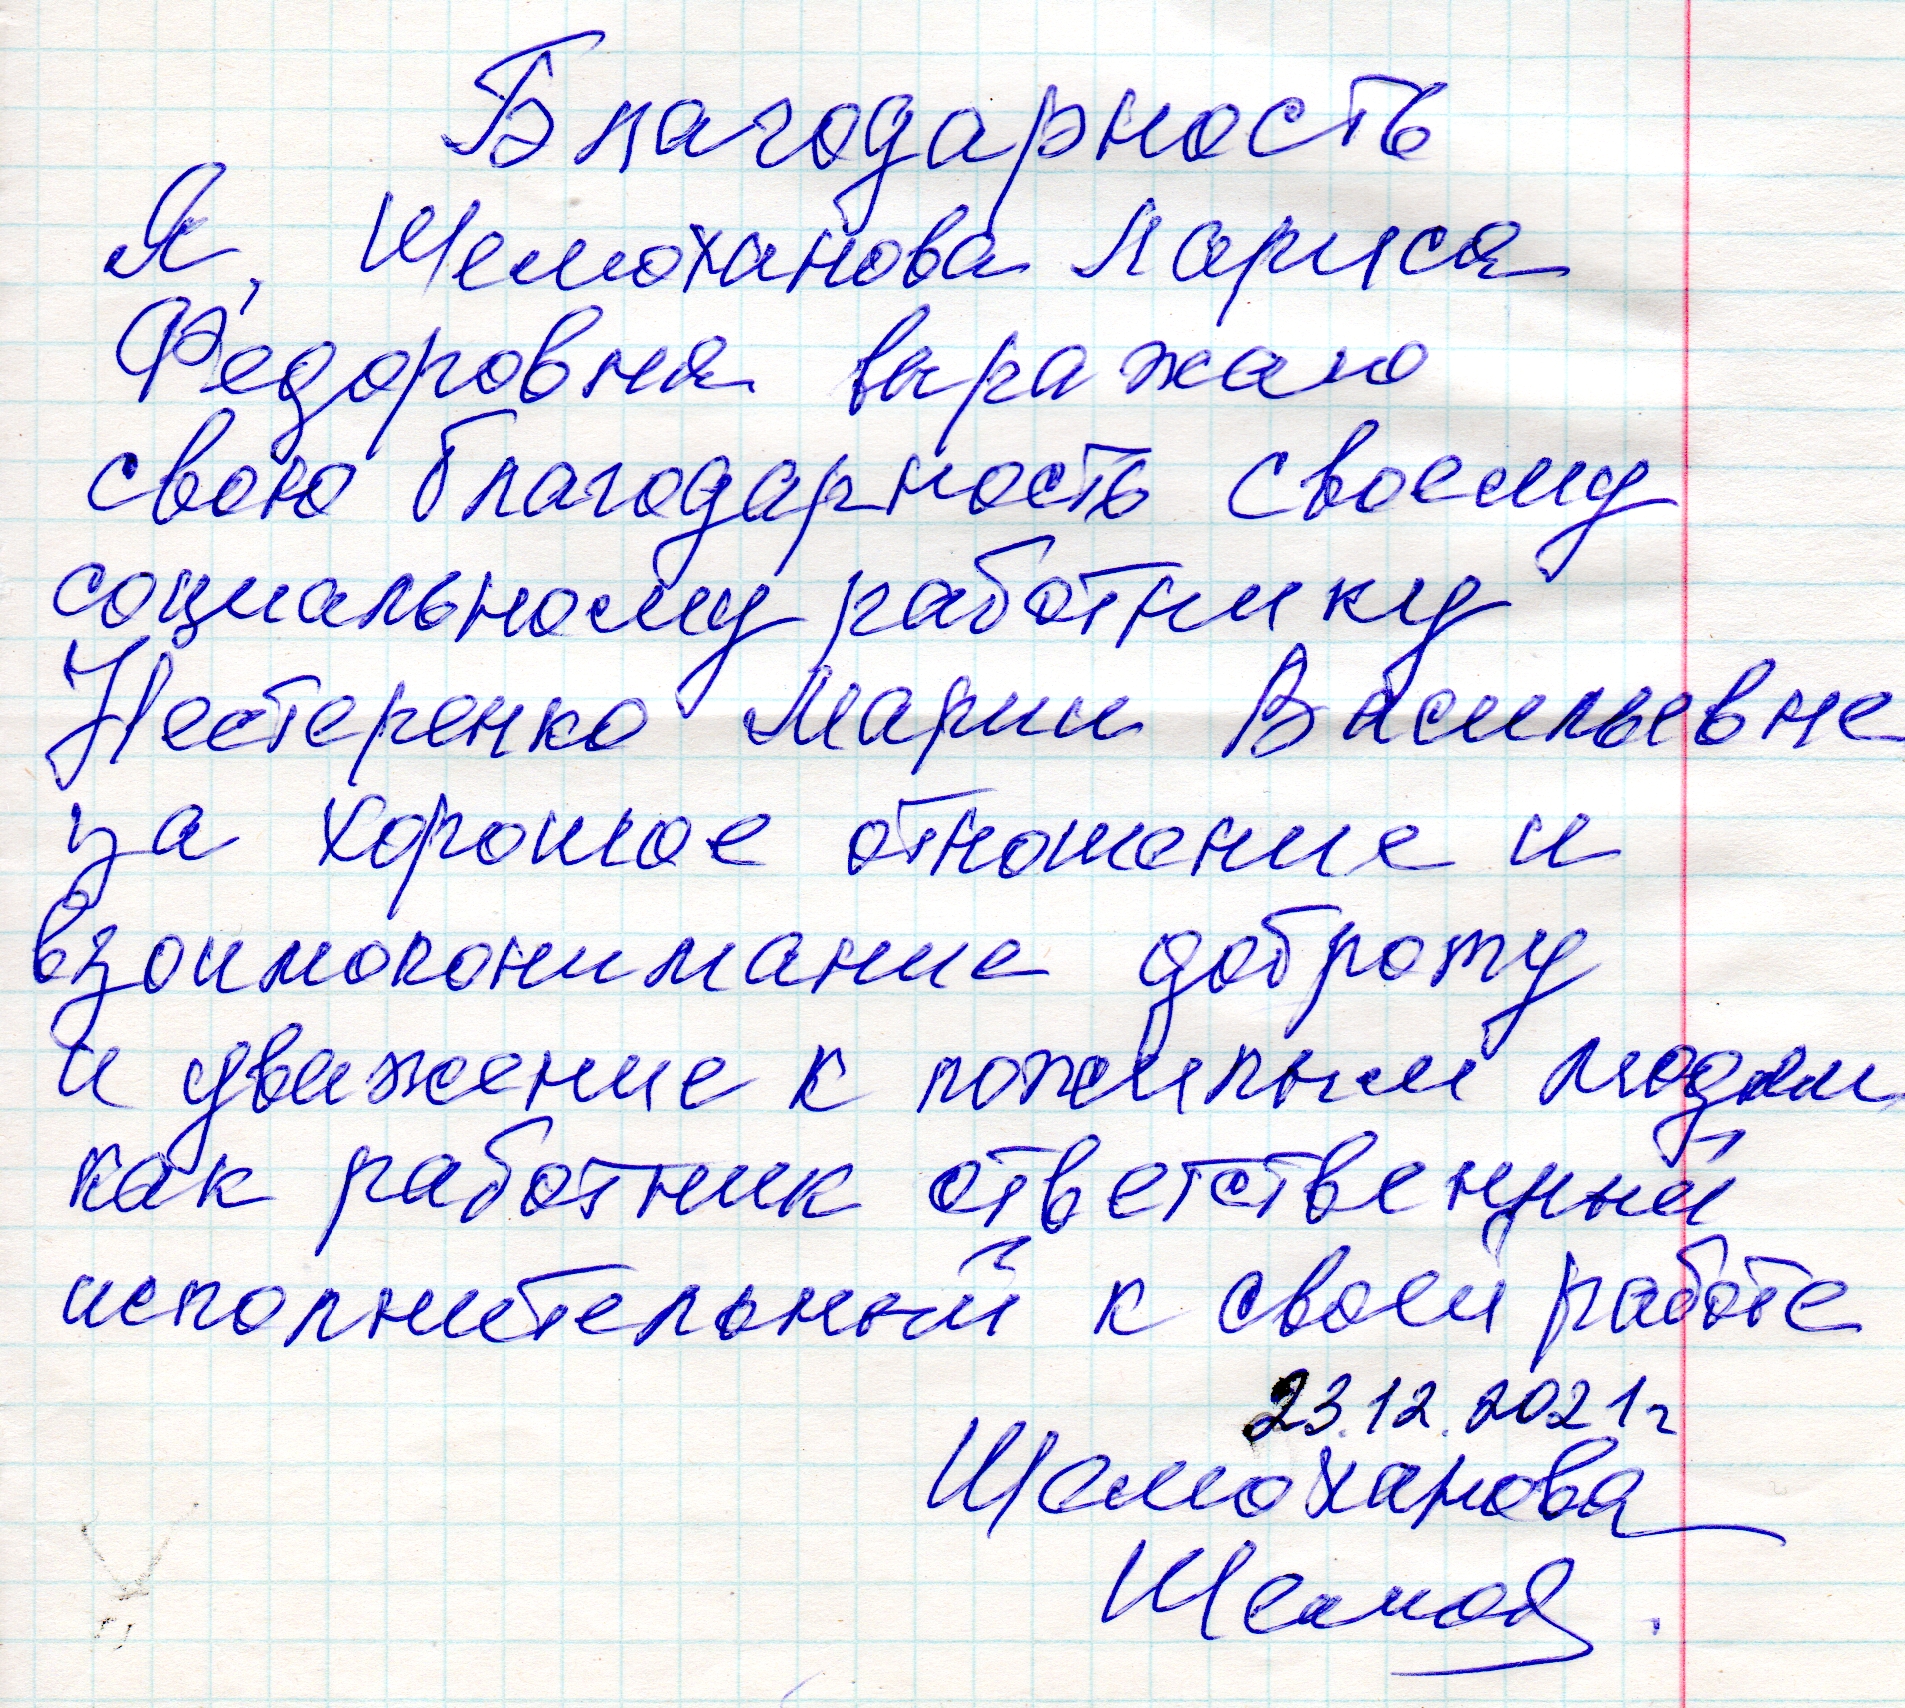 Благодарность
Я, Шемоханова Лариса
Федоровна выражаю
свою благодарность своему
социальному работнику
Нестеренко Марии Васильевне
за хорошое отношение и
взоимопонимание доброту
и уважение к пожилым людям
как работник ответственный
исполнительный к своей работе
23.12.2021г
Шемоханова